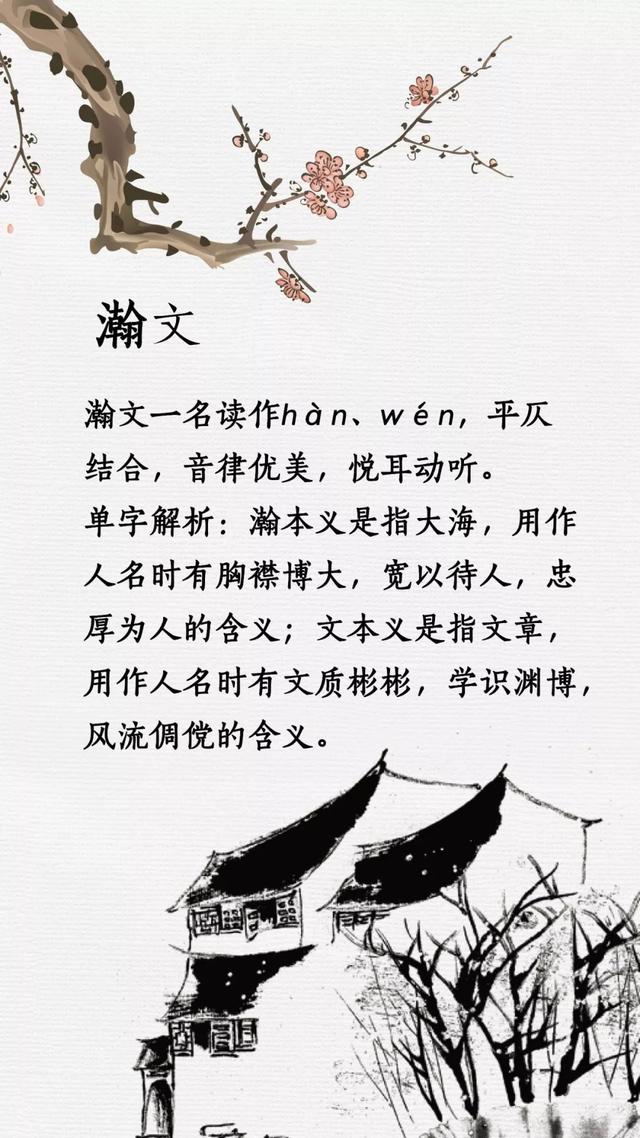 瀚文
瀚文一名读作hàn、wén，平仄
结合，音律优美，悦耳动听。
单字解析：瀚本义是指大海，用作
人名时有胸襟博大，宽以待人，忠
厚为人的含义；文本义是指文章，
用作人名时有文质彬彬，学识渊博，
风流倜傥的含义。